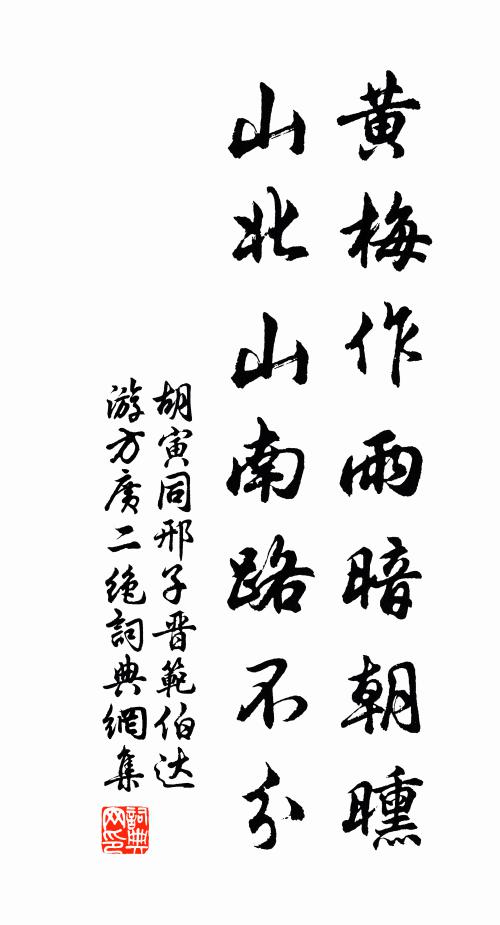 黄梅作雨暗朝曛
山北山南路不分
胡寅同邢子晋範伯达
游方廣二绝詞典網集
詞典
网印